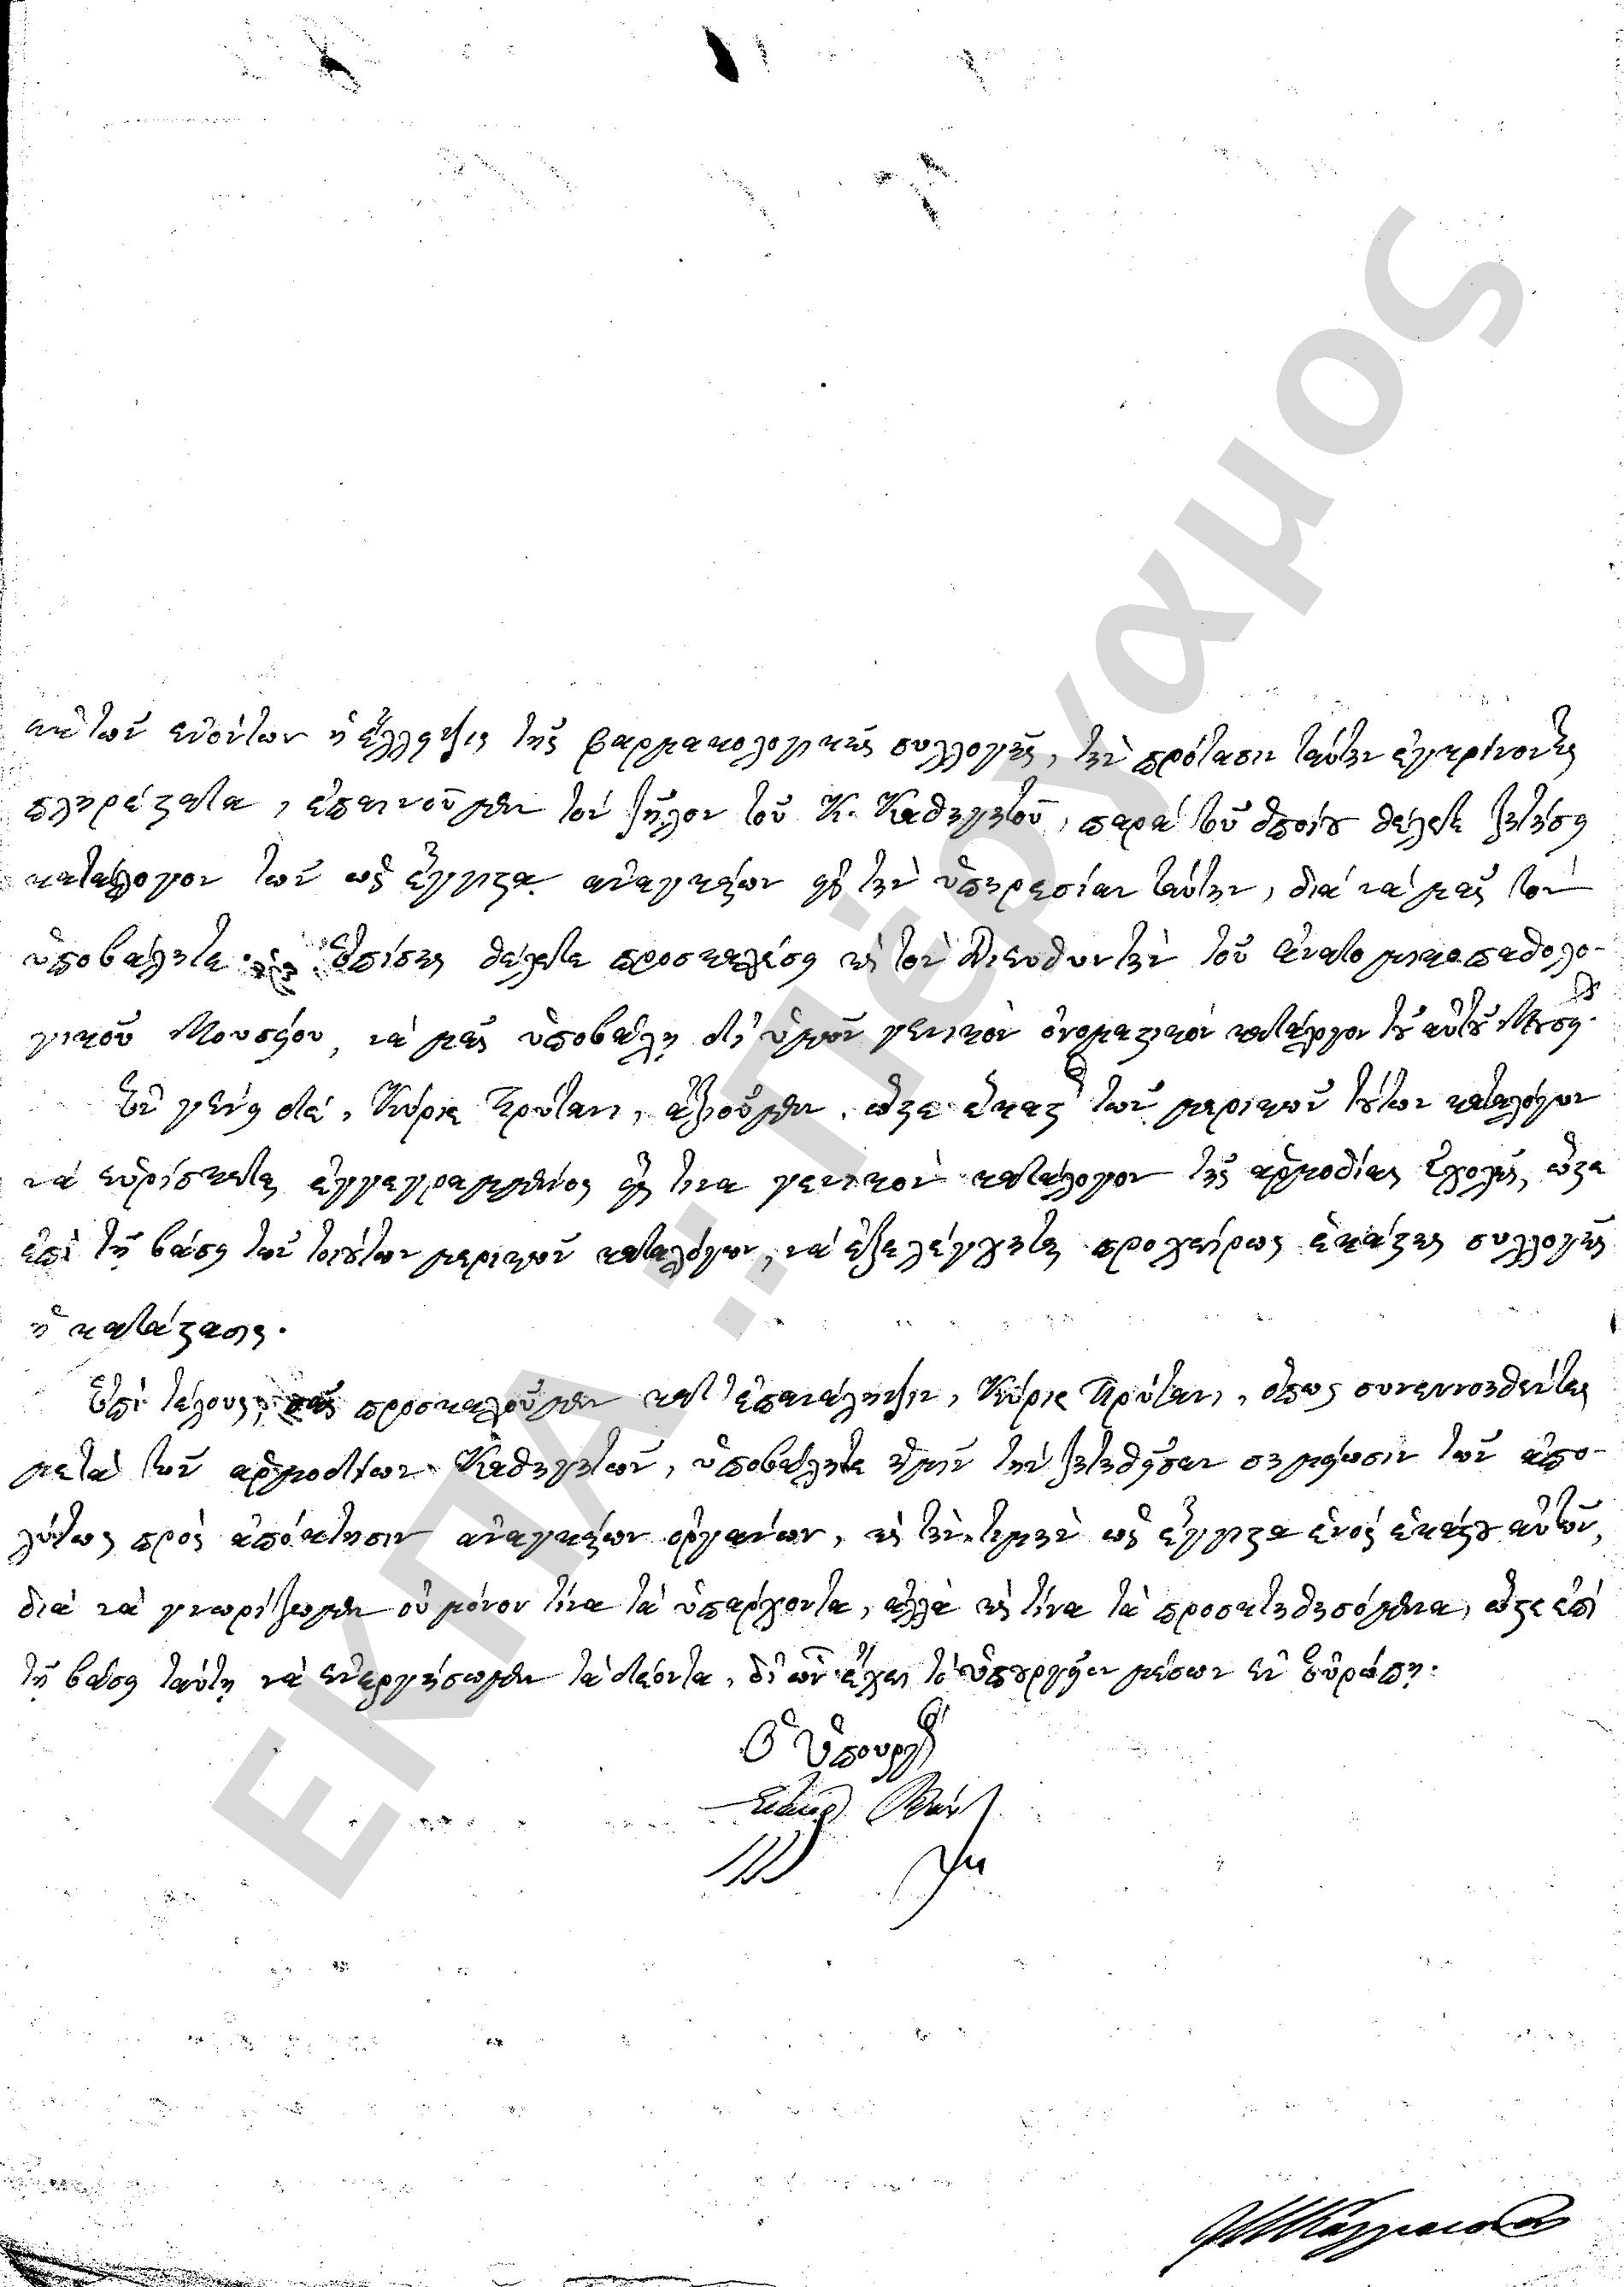 ἐκ τῶν ἐνόντων ἡ ἔλλειψις τῆς φαρμακολογικῆς συλλογῆς, τὴν πρότασιν ταύτην ἐγκρίνοντες
πληρέστατα, ἐπαινοῦμεν τὸν ζῆλον τοῦ Κ. Καθηγητοῦ, παρὰ τοῦ ὁποίου θέλετε ζητήσει
κατάλογον τῶν ὡς ἔγγιστα ἀναγκαίων εἰς τὴν ὑπηρεσίαν ταύτην, διὰ νὰ μᾶς τὸν
ὑποβάλητε. Ἐπίσης θέλετε προσκαλέσει καὶ τὸν Διευθυντὴν τοῦ ἀνατομικοπαθολο-
γικοῦ Μουσείου, νὰ μᾶς ὑποβάλῃ δι' ὑμῶν γενικὸν ὀνομαστικὸν κατάλογον τοῦ αὐτοῦ Μουσείου.
Ἐν γένει δὲ, Κύριε Πρύτανι, ἀξιοῦμεν, ὥστε ἕκαστος τῶν μερικῶν τούτων καταλόγων
νὰ εὑρίσκεται ἐγγεγραμμένος εἴς τινα γενικὸν κατάλογον τῆς ἁρμοδίας Σχολῆς, ὥστε
ἐπὶ τῇ βάσει τῶν τοιούτων μερικῶν καταλόγων, νὰ ἐξελέγχηται προχείρως ἑκάστης συλλογῆς
ἡ κατάστασις.
Ἐπὶ τέλους, σᾶς προσκαλοῦμεν κατ' ἐπανάληψιν, Κύριε Πρύτανι, ὅπως συνεννοηθέντες
μετὰ τῶν ἁρμοδίων Καθηγητῶν, ὑποβάλητε ἡμῖν τὴν ζητηθεῖσαν σημείωσιν τῶν ἀπο-
λύτως πρὸς ἀπόκτησιν ἀναγκαίων ὀργάνων, καὶ τὴν τιμὴν ὡς ἔγγιστα ἑνὸς ἑκάστου αὐτῶν,
διὰ νὰ γνωρίζωμεν οὐ μόνον τίνα τὰ ὑπάρχοντα, ἀλλὰ καὶ τίνα τὰ προσκτηθησόμενα, ὥστε ἐπὶ
τῇ βάσει ταύτῃ νὰ ἐνεργήσωμεν τὰ δέοντα, δι' ὧν ἔχει τὸ ὑπουργεῖον μέσων ἐν Εὐρώπῃ.
Ὁ Ὑπουργὸς
ΕΚΠΑ :: Πέργαμος